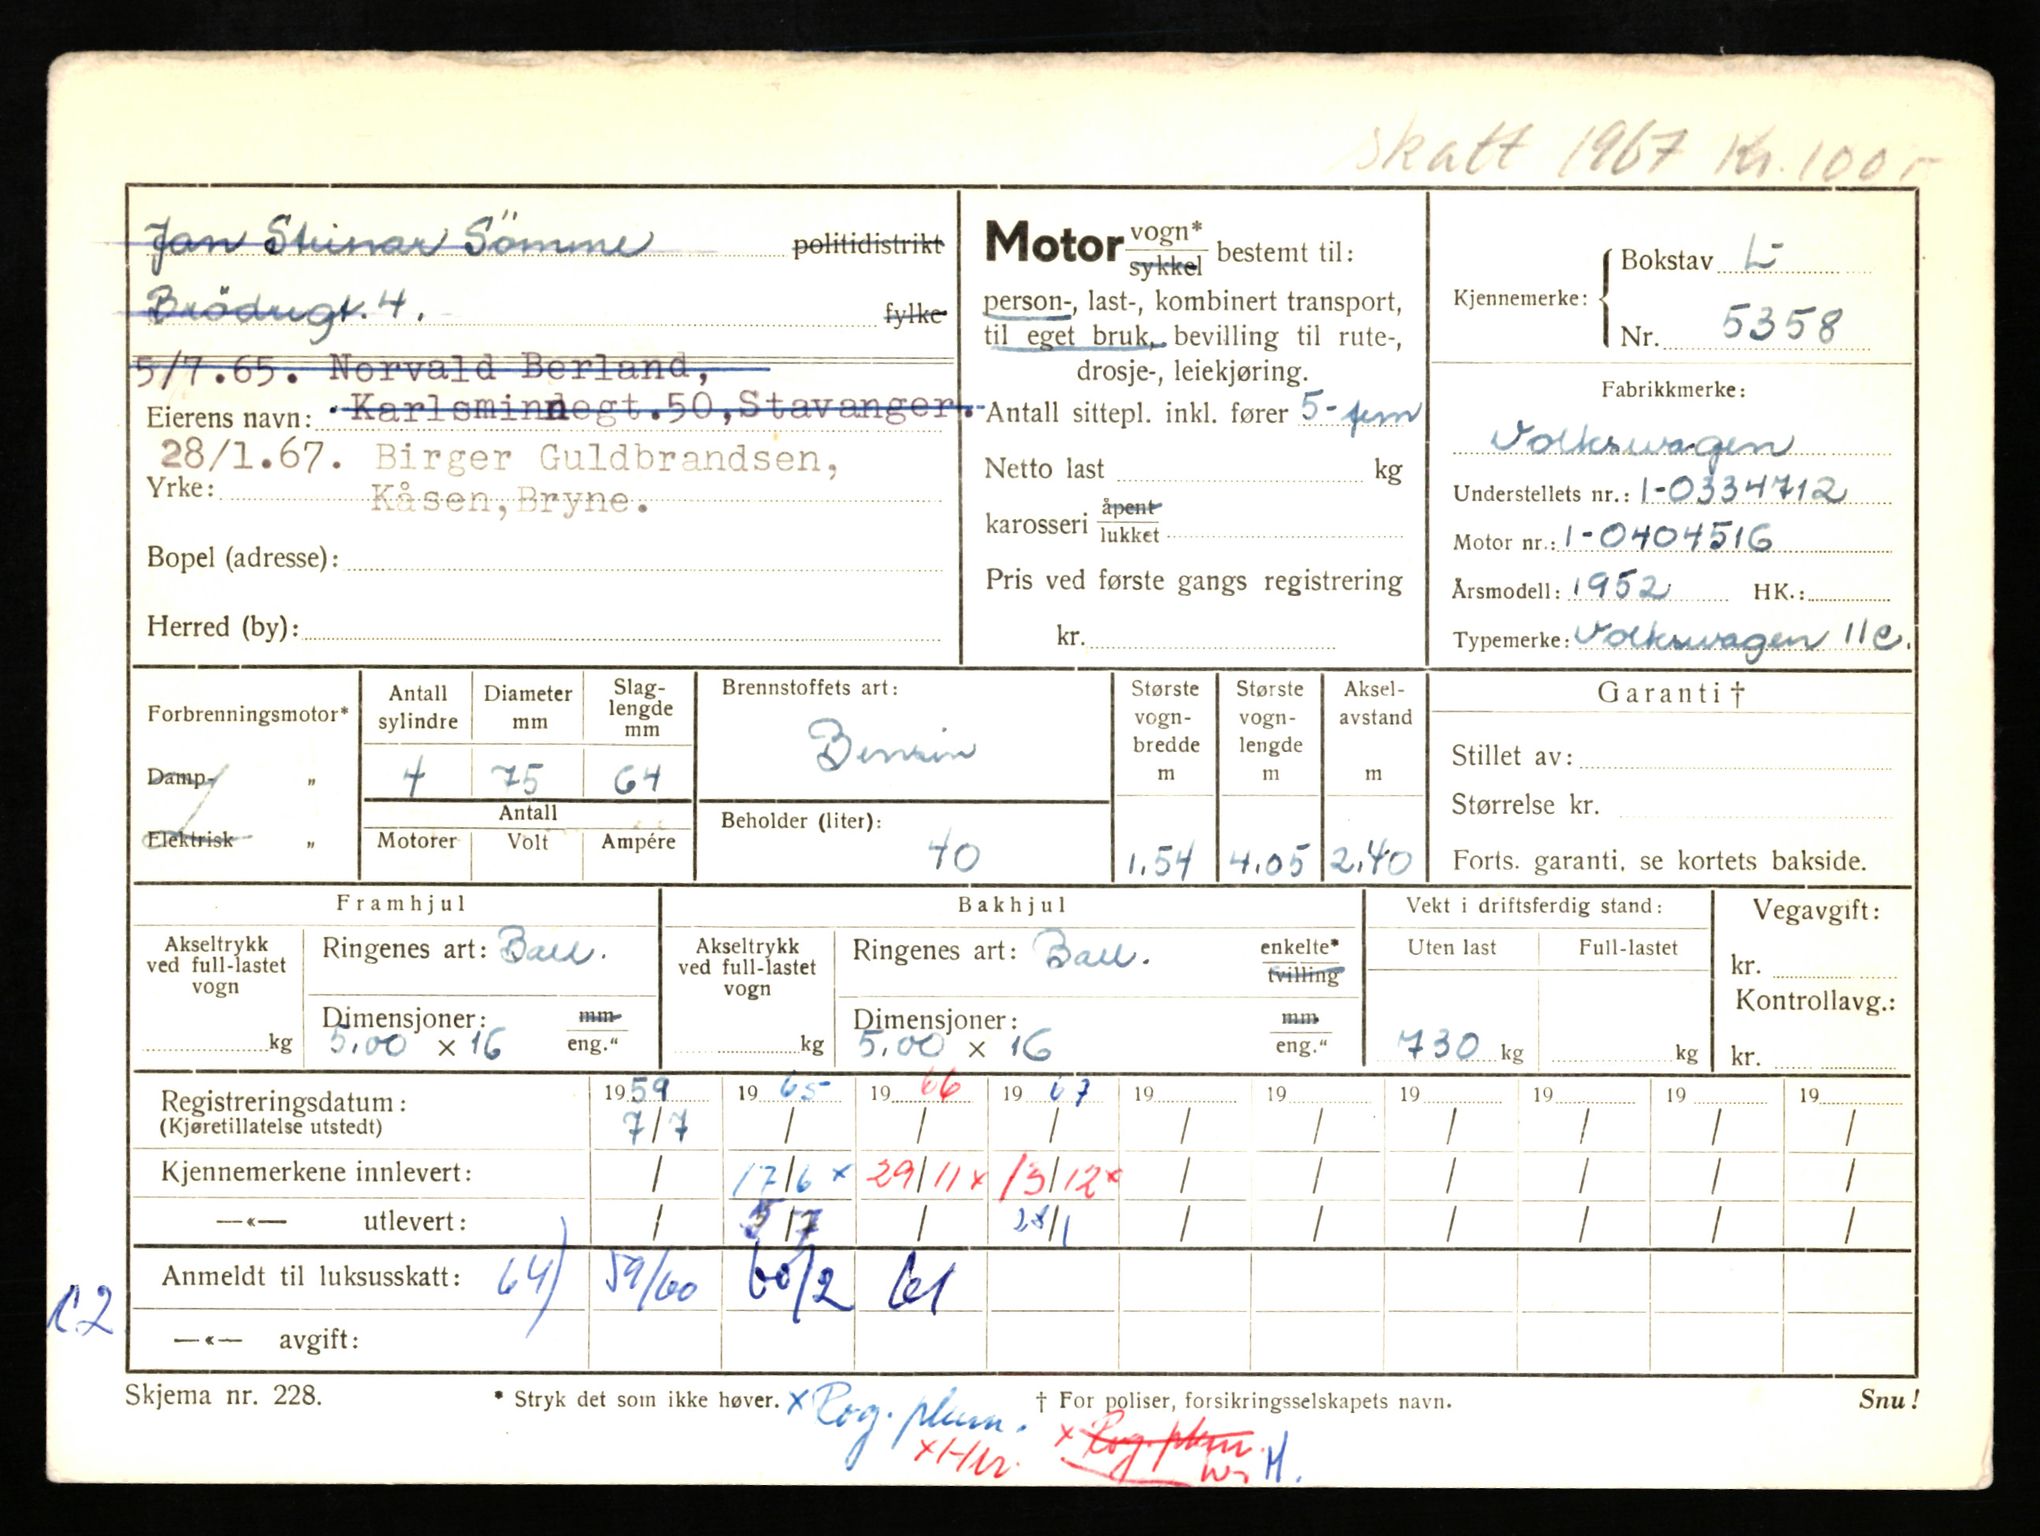 skatt 1967 Kr. 100
Jan Steinar Sömme politidistrikt
Brödregt. 4. fylke
5/7.65. Norvald Berland,
Karlsminnegt.50, Stavanger.
Eierens navn:
28/1.67. Birger Guldbrandsen,
Yrke: Kåsen, Bryne.
Bopel (adresse):
Herred (by):
Motor vogn* sykkel bestemt til:
person-, last-, kombinert transport,
til eget bruk, bevilling til rute-,
drosje-, leiekjøring.
Antall sittepl. inkl. fører 5- fem
Netto last kg
karosseri åpent lukket
Pris ved første gangs registrering
kr.
Kjennemerke: Bokstav L-
Nr. 5358
Fabrikkmerke:
Volkswagen
Understellets nr.: 1-0334712
Motor nr.: 1-0404516
Årsmodell: 1952 HK.:
Typemerke: Volkswagen 11c.
Forbrenningsmotor*
Damp- „
Elektrisk „
Antall sylindre Diameter mm Slag-lengde mm
4 75 64
Antall
Motorer Volt Ampére
Brennstoffets art:
Bensin
Beholder (liter):
40
Største vogn-bredde m Største vogn-lengde m Aksel-avstand m
1.54 4.05 2.40
Garanti †
Stillet av:
Størrelse kr.
Forts. garanti, se kortets bakside.
Framhjul
Akseltrykk ved full-lastet vogn
kg
Ringenes art: Ball.
Dimensjoner: mm
5.00 × 16 eng.“
Bakhjul
Akseltrykk ved full-lastet vogn
kg
Ringenes art: Ball. enkelte* tvilling
Dimensjoner: mm
5.00 × 16 eng.“
Vekt i driftsferdig stand:
Uten last Full-lastet
730 kg kg
Vegavgift:
kr.
Kontrollavg.:
kr.
Registreringsdatum: 1959 1965 1966 1967 19 19 19 19 19 19
(Kjøretillatelse utstedt) 7/7 / / / / / / / / /
Kjennemerkene innlevert: / 17/6 x 29/11 x 13/12 x / / / / / /
—«— utlevert: / 5/7 / 28/1 / / / / / /
Anmeldt til luksusskatt: 64) 59/60 60/2 61
—«— avgift:
Skjema nr. 228. * Stryk det som ikke høver. † For poliser, forsikringsselskapets navn. Snu!
x Rog. plum.
x Rog. plum. H.